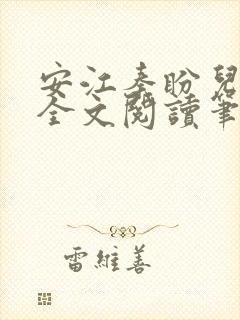 安江秦盼兒
全文閱讀筆
雷維善